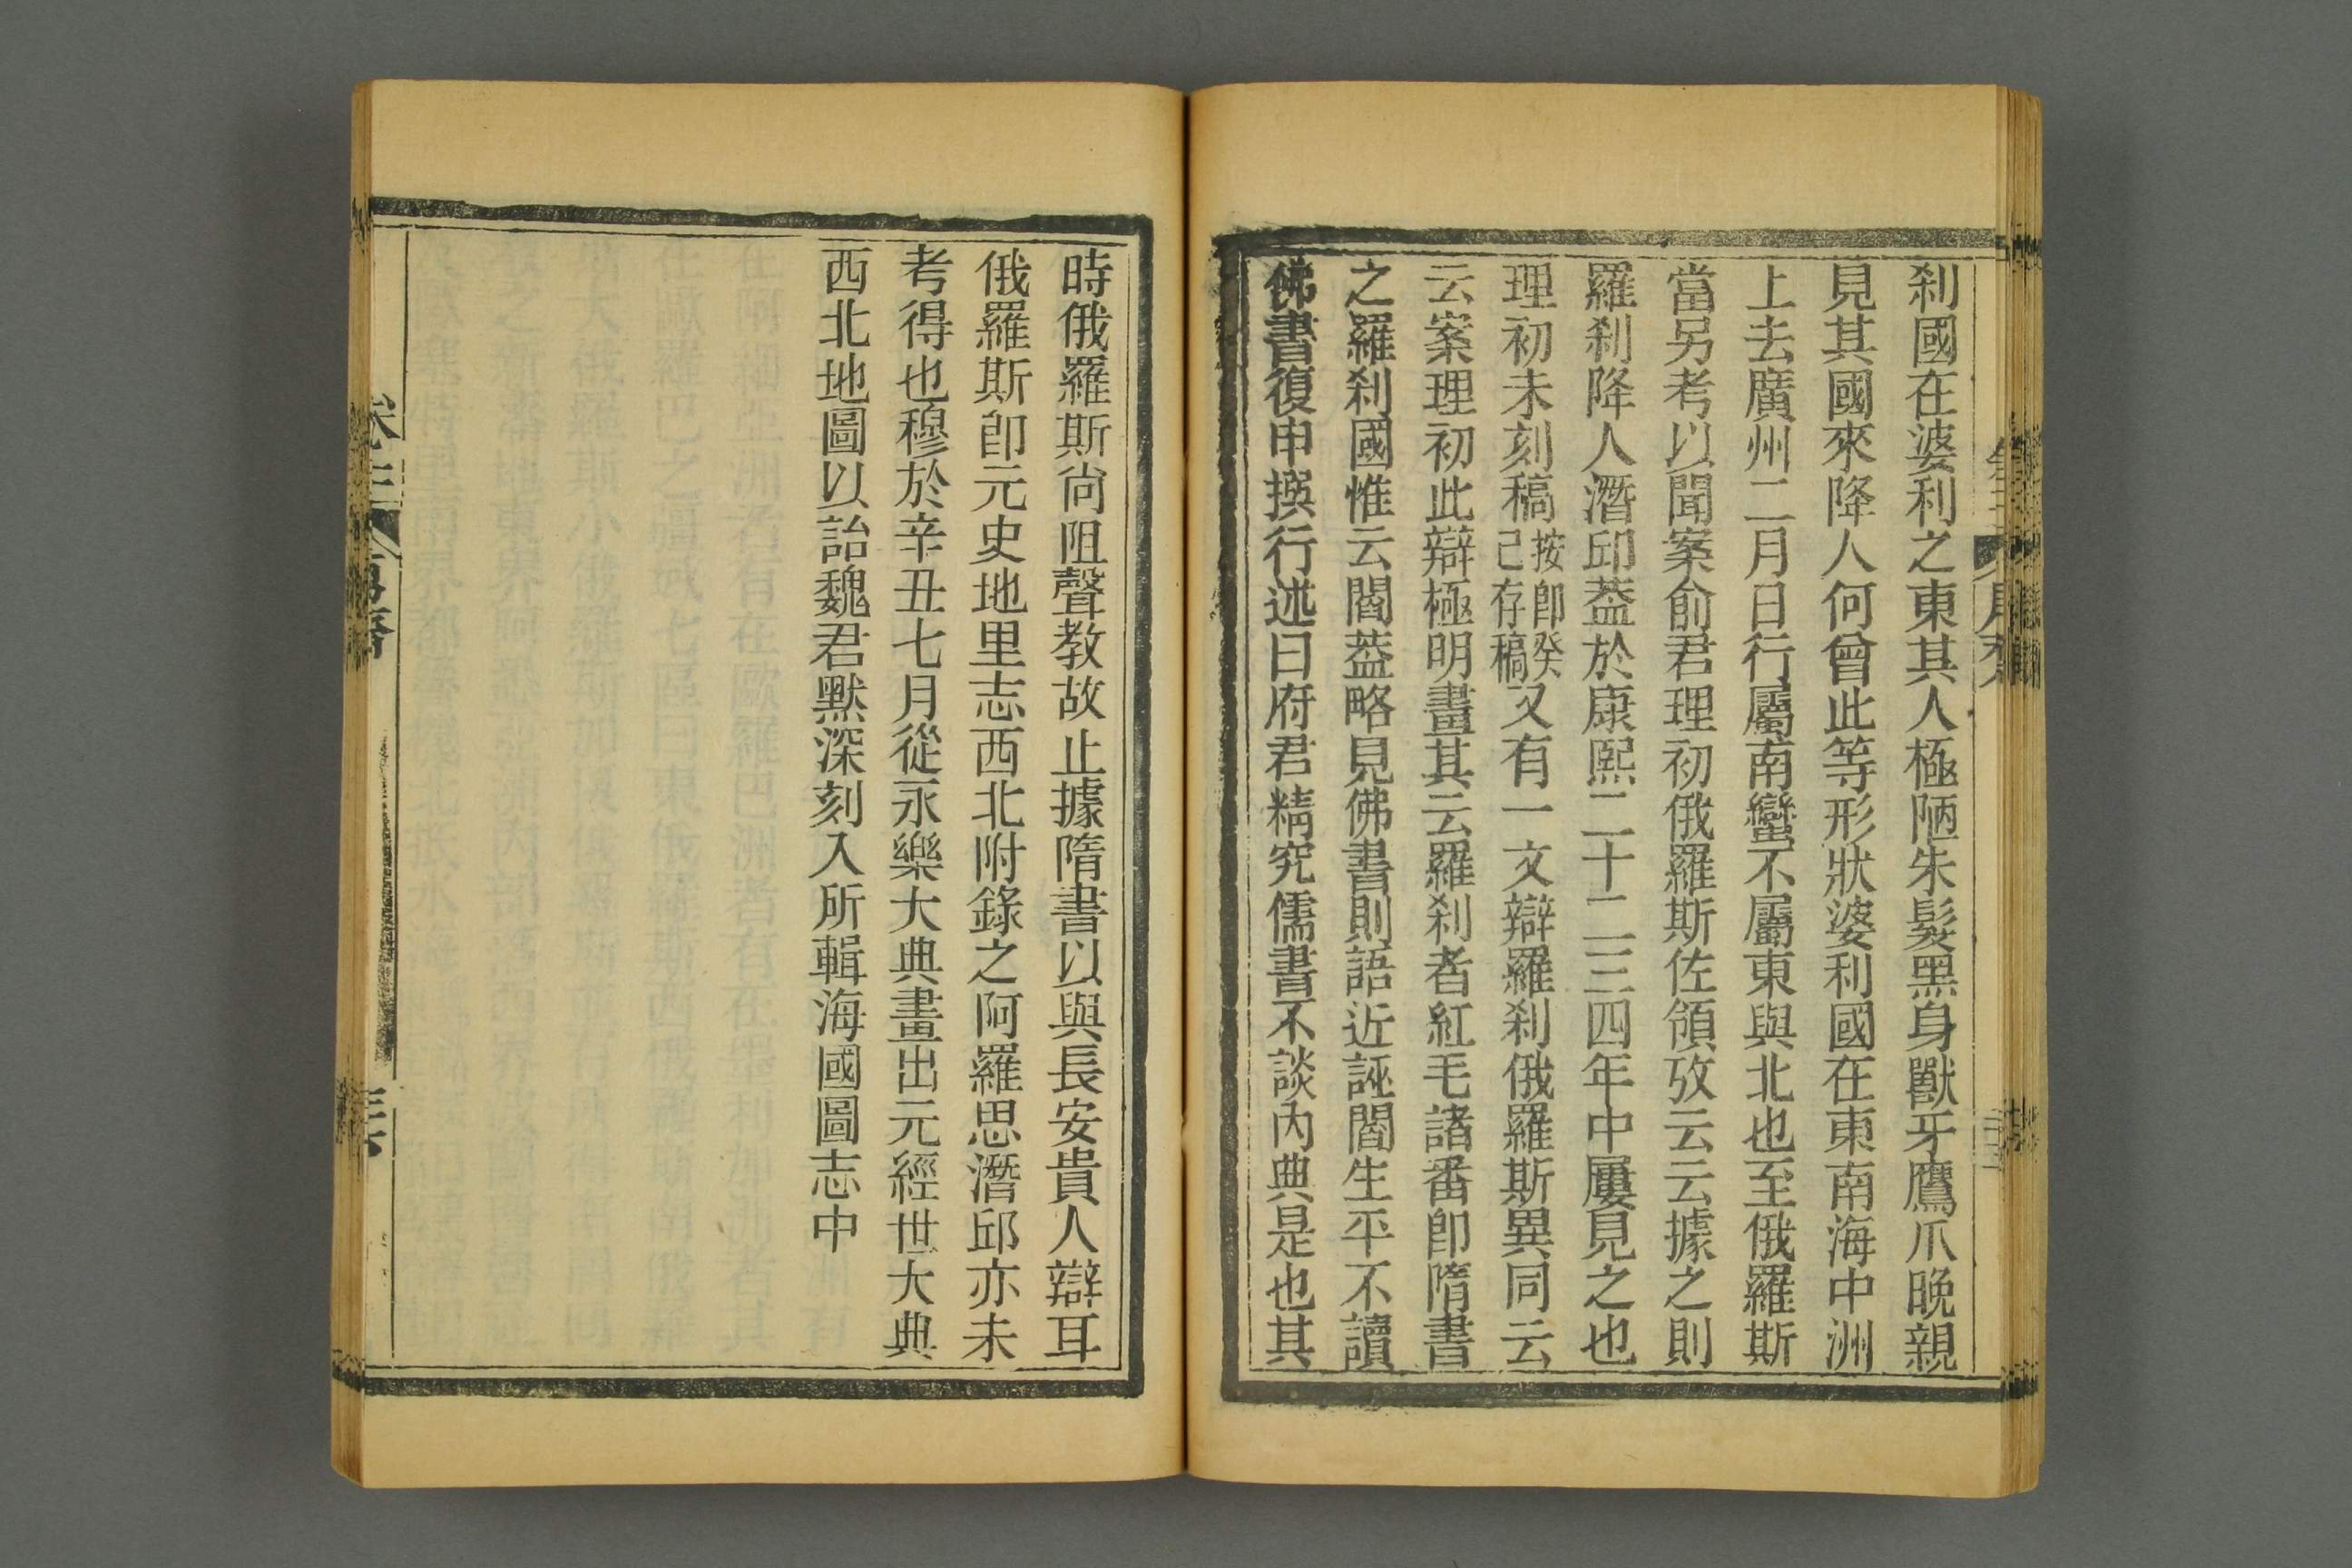 刹國在婆利之東其人極陋朱髮黑身獸牙鷹爪晚親
見其國來降人何曾此等形狀婆利國在東南海中洲
上去廣州二月日行屬南蠻不屬東與北也至俄羅斯
當另考以聞案俞君理初俄羅斯佐領攷云云據之則
羅刹降人潛邱葢於康熙二十二三四年中屢見之也
理初未刻稿按卽癸巳存稿又有一文辯羅刹俄羅斯異同云
云案理初此辯極明畫其云羅刹者紅毛諸番卽隋書
之羅刹國惟云閻葢略見佛書則語近誣閻生平不讀
佛書復申撰行述曰府君精究儒書不談內典是也其
時俄羅斯尙阻聲教故止據隋書以與長安貴人辯耳
俄羅斯卽元史地里志西北附錄之阿羅思潛邱亦未
考得也穆於辛丑七月從永樂大典畫出元經世大典
西北地圖以詒魏君默深刻入所輯海國圖志中
卷三